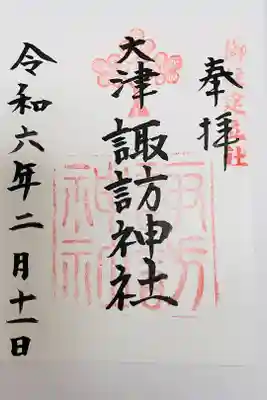 奉拝
大津
諏訪神社
令和六年二月十一日